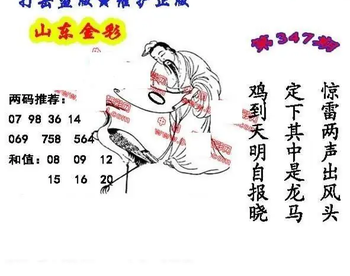 山东金彩
第347期
两码推荐:
07 98 36 14
069 758 564
和值: 08 09 12
15 16 20
惊雷两声出风头
定下其中是龙马
鸡到天明自报晓